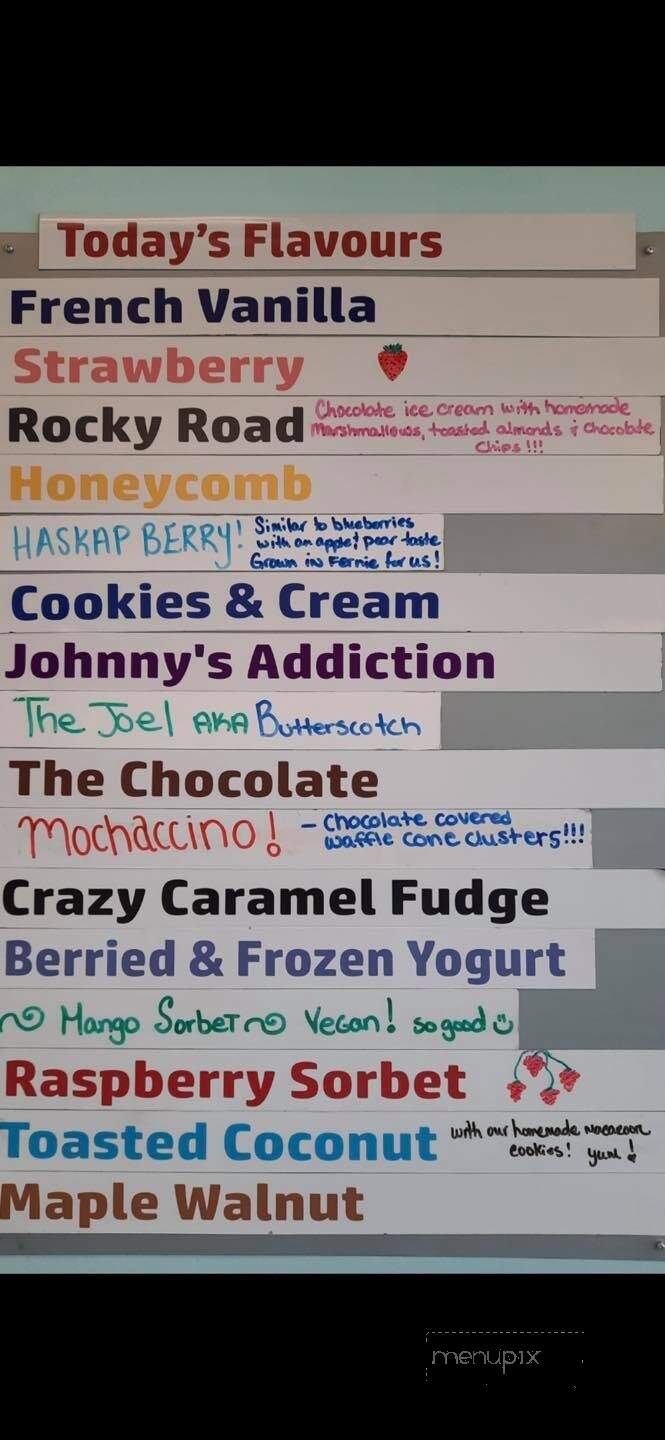 Today's Flavours
French Vanilla
Strawberry
Rocky Road Chocolate ice cream with homemade
Marshmallows, toasted almonds & Chocolate
Chips!!!
Honeycomb
HASKAP BERRY! Similar to blueberries
with an apple & pear taste
Grown in Fernie for us!
Cookies & Cream
Johnny's Addiction
The Joel AKA Butterscotch
The Chocolate
Mochaccino! - Chocolate covered
waffle cone clusters!!!
Crazy Caramel Fudge
Berried & Frozen Yogurt
Mango Sorbet Vegan! so good
Raspberry Sorbet
Toasted Coconut with our homemade macaroon
cookies! yum!
Maple Walnut
menupix